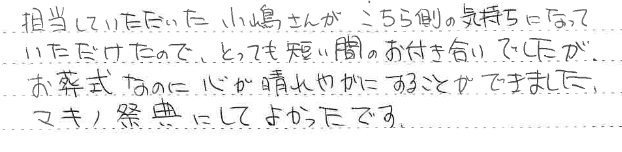 担当していただいた小嶋さんがこちら側の気持ちになって
いただけたので、とっても短い間のお付き合いでしたが、
お葬式なのに心が晴れやかにすることができました、
マキノ祭典にしてよかったです、